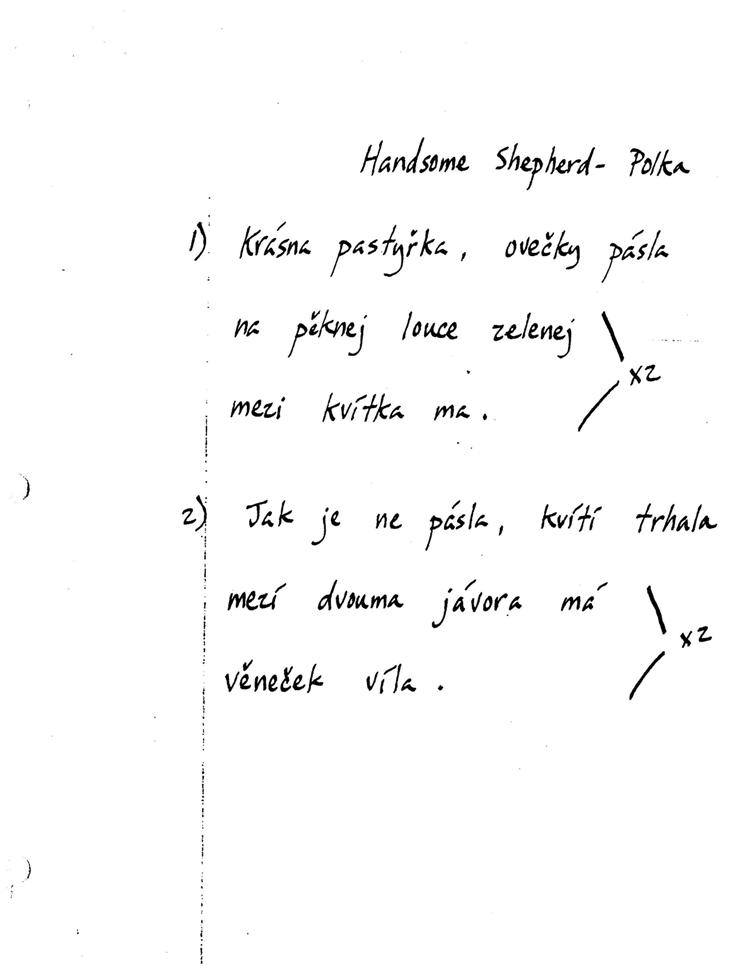 Handsome Shepherd- Polka
1) Krásna pastyřka, ovečky pásla
na pěknej louce zelenej
x2
mezi kvítka ma.
2) Jak je ne pásla, kvítí trhala
mezí dvouma jávora má
x2
věneček víla.